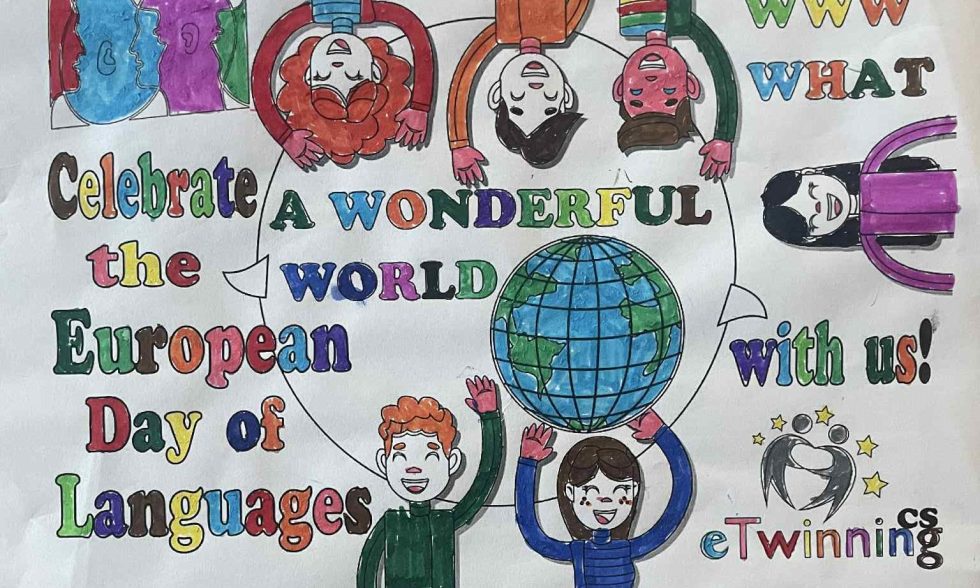 WWW
WHAT
A WONDERFUL
WORLD
Celebrate
the
European
Day of
Languages
with us!
eTwinning
cs